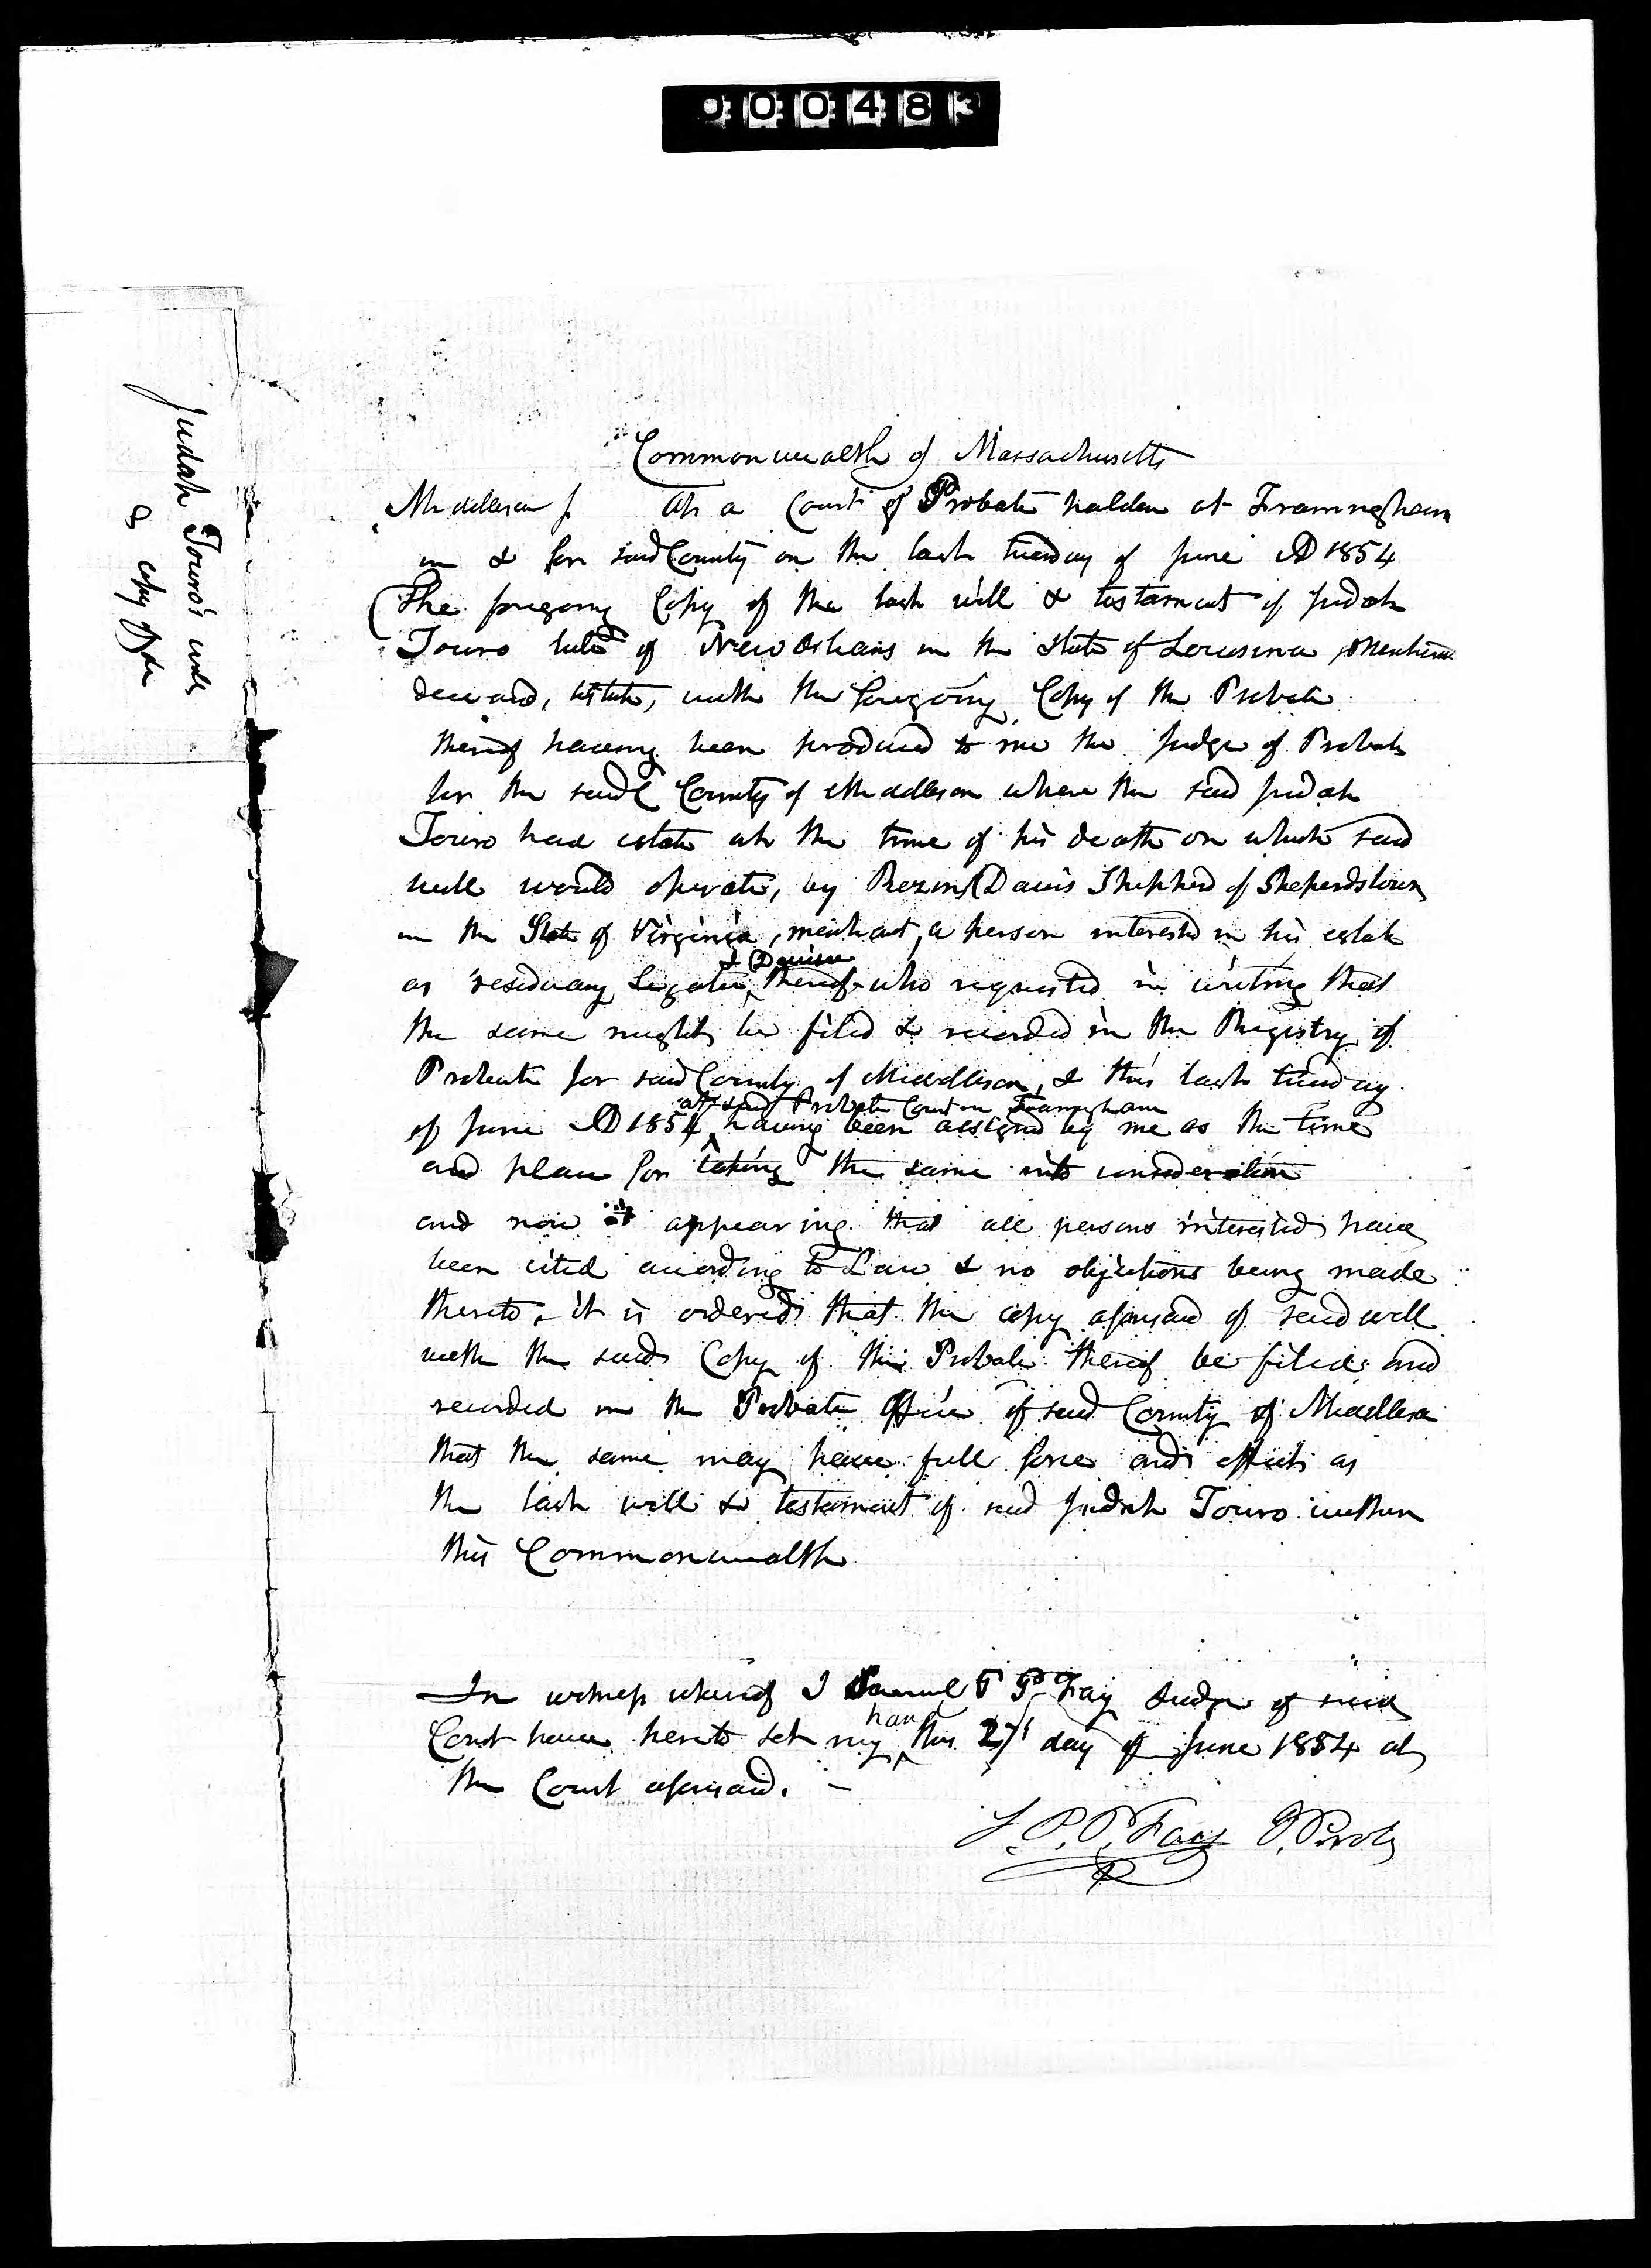 000483
Judah Touro's will
& copy of
Commonwealth of Massachusetts
Middlesex ss. At a Court of Probate holden at Framingham
in & for said County on the last tuesday of June AD 1854
The foregoing Copy of the last will & testament of Judah
Touro late of New Orleans in the State of Louisiana, Merchant
deceased, testate, with the foregoing Copy of the Probate
thereof having been produced to me the Judge of Probate
for the said County of Middlesex where the said Judah
Touro had estate at the time of his death on which said
will would operate, by Rezin Davis Shepherd of Sheperdstown
in the State of Virginia, merchant, a person interested in his estate
& Devisee
as residuary Legatee, thereof who requested in writing that
the same might be filed & recorded in the Registry of
Probate for said County of Middlesex, & this last tuesday
at said Probate Court in Framingham
of June AD 1854 having been assigned by me as the time
and place for taking the same into consideration
and now it appearing that all persons interested have
been cited according to Law & no objections being made
thereto, it is ordered that the copy aforesaid of said will
with the said Copy of the Probate thereof be filed and
recorded in the Probate Office of said County of Middlesex
that the same may have full force and effect as
the last will & testament of said Judah Touro within
this Commonwealth
In witness whereof I Samuel P P Fay Judge of said
hand
Court have hereto set my this 27 day of June 1854 at
the Court aforesaid. –
S. P. P. Fay J. Prob